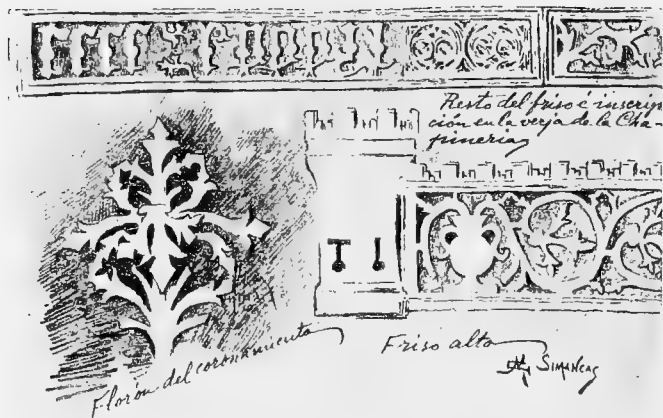 Resto del friso é inscrip
ción en la verja de la Cha-
pinería
Florón del coronamiento
Friso alto
SIMANCAS